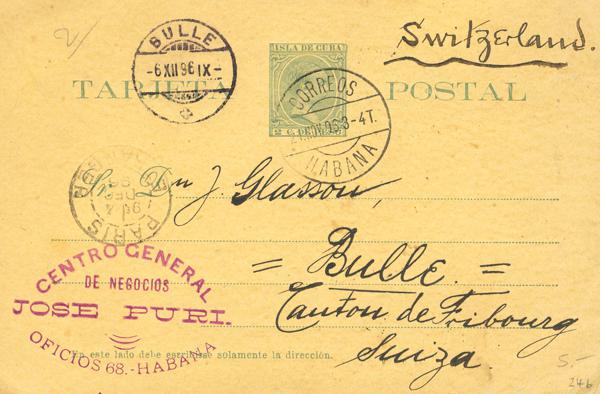 Switzerland.
BULLE
-6 XII 96 IX-
ISLA DE CUBA
TARJETA POSTAL
CORREOS
NOV 96 3-4T.
HABANA
Sr. Dn J. Glasson,
PARIS
DEC
= Bulle. =
Canton de Fribourg
Suiza.
CENTRO GENERAL
DE NEGOCIOS
JOSE PURI.
OFICIOS 68.-HABANA
En este lado debe escribirse solamente la dirección.
5.-
246